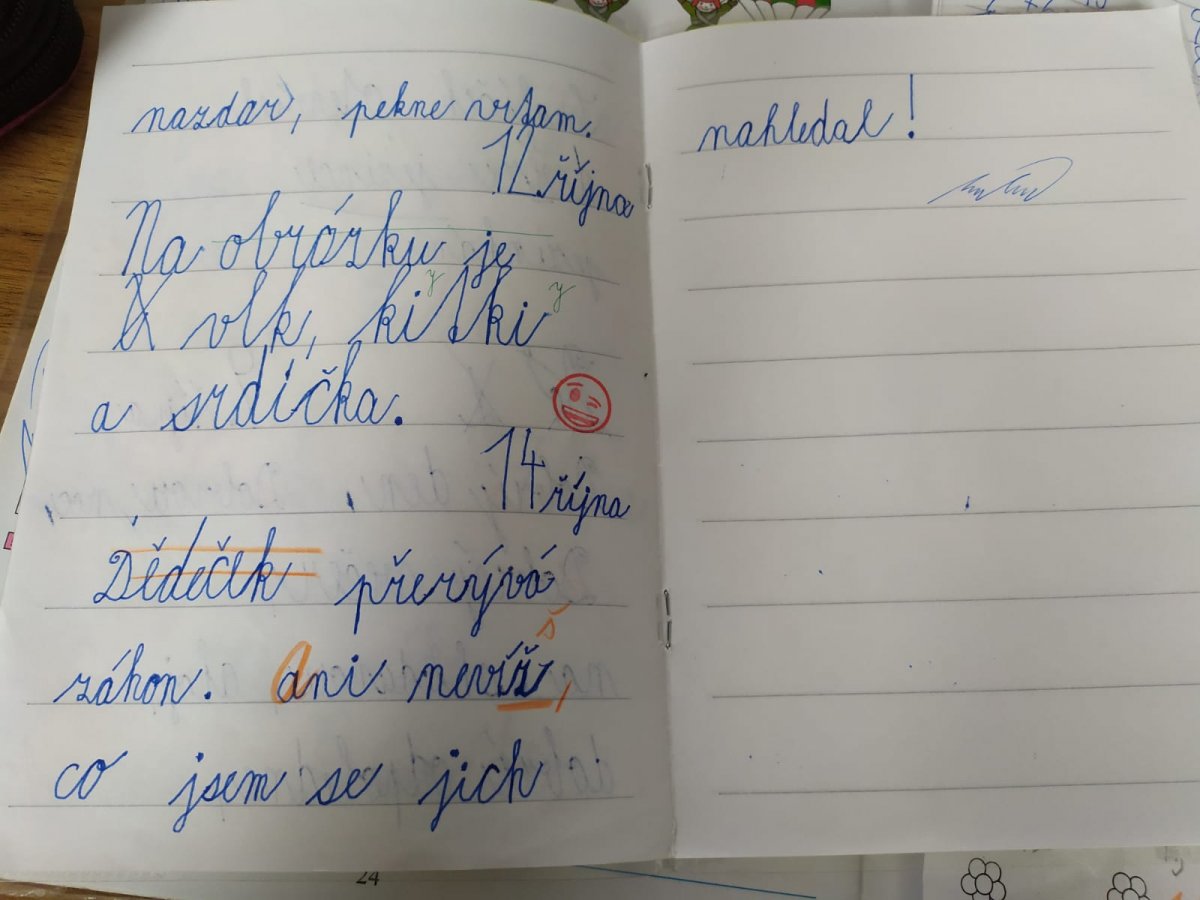 nazdar, pekne vrtam.
12 října
Na obrázku je
volk, kitki
y y
a srdíčka.
14 října
Dědeček přerývá
š
záhon. Ani nevíž,
co jsem se jich
nahledal!
24